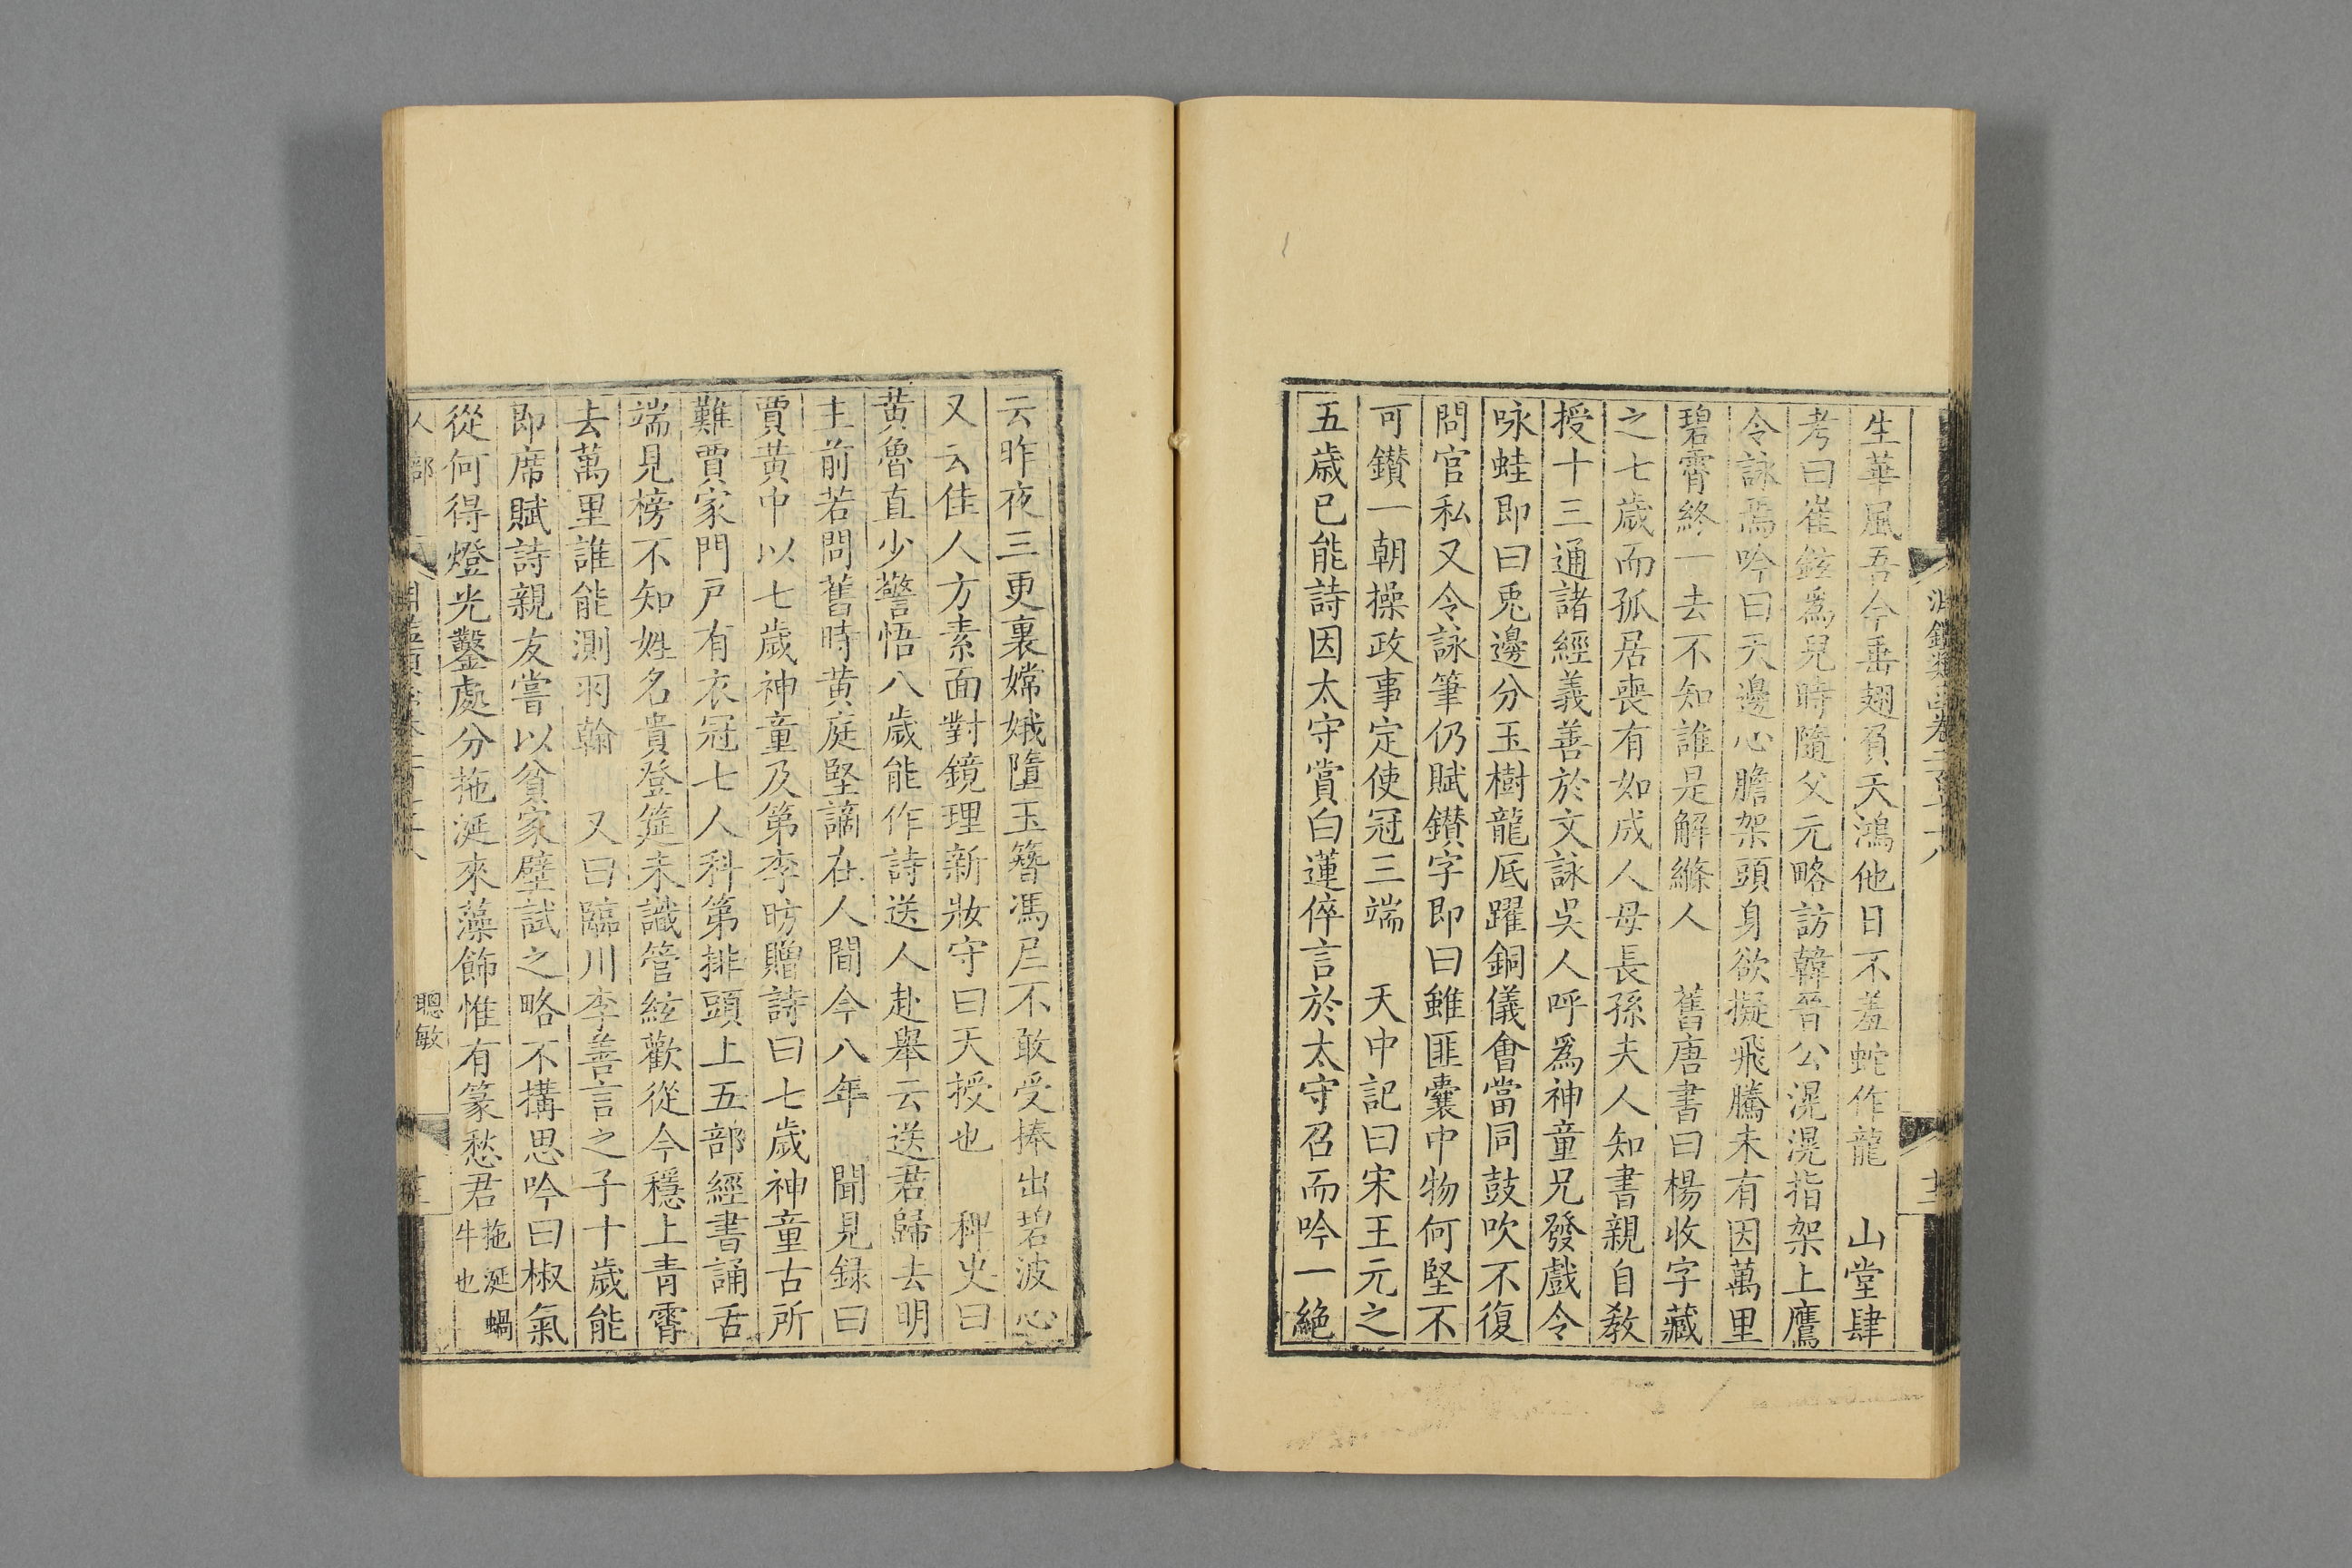 生華風吾今垂翅負天鴻他日不羞蛇作龍　山堂肆
考曰崔鉉爲兒時隨父元略訪韓晉公滉滉指架上鷹
令詠焉吟曰天邊心膽架頭身欲擬飛騰未有因萬里
碧霄終一去不知誰是解絛人　舊唐書曰楊收字藏
之七歲而孤居喪有如成人母長孫夫人知書親自敎
授十三通諸經義善於文詠吳人呼爲神童兄發戲令
咏蛙即曰兎邊分玉樹龍底躍銅儀會當同鼓吹不復
問官私又令詠筆仍賦鑚字即曰雖匪囊中物何堅不
可鑚一朝操政事定使冠三端　天中記曰宋王元之
五歲已能詩因太守賞白蓮倅言於太守召而吟一絶
云昨夜三更裏嫦娥墮玉簪馮㠯不敢受捧出碧波心
又云佳人方素面對鏡理新妝守曰天授也　稗史曰
黃魯直少警悟八歲能作詩送人赴舉云送君歸去明
主前若問舊時黃庭堅謫在人間今八年　聞見録曰
賈黃中以七歲神童及第李昉贈詩曰七歲神童古所
難賈家門戶有衣冠七人科第排頭上五部經書誦舌
端見榜不知姓名貴登筵未識管絃歡從今穩上青霄
去萬里誰能測羽翰　又曰臨川李善言之子十歲能
即席賦詩親友嘗以貧家壁試之略不搆思吟曰椒氣
從何得燈光鑿處分拖涎來藻飾惟有篆愁君拖涎蝸
牛也
人部
聰敏